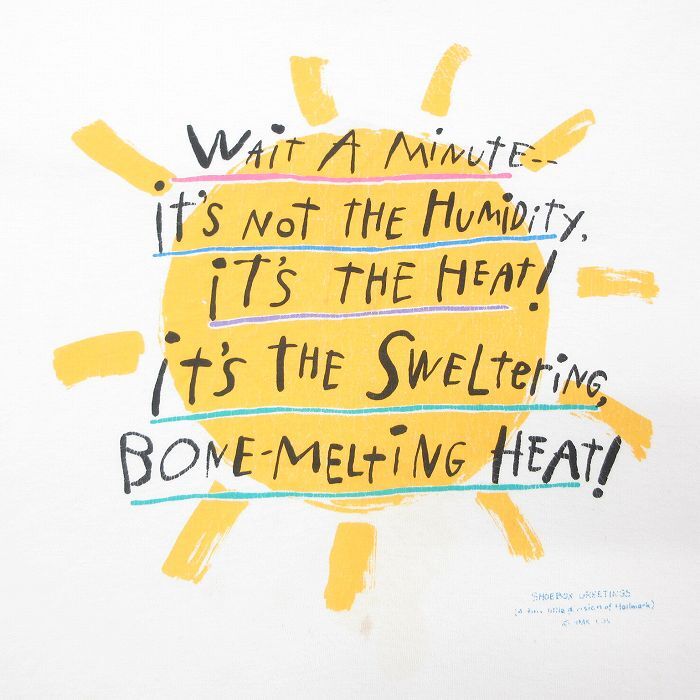 Wait A Minute--
It's not the Humidity,
it's the Heat!
it's the Sweltering,
Bone-Melting Heat!
SHOEBOX GREETINGS
(a tiny little division of Hallmark)